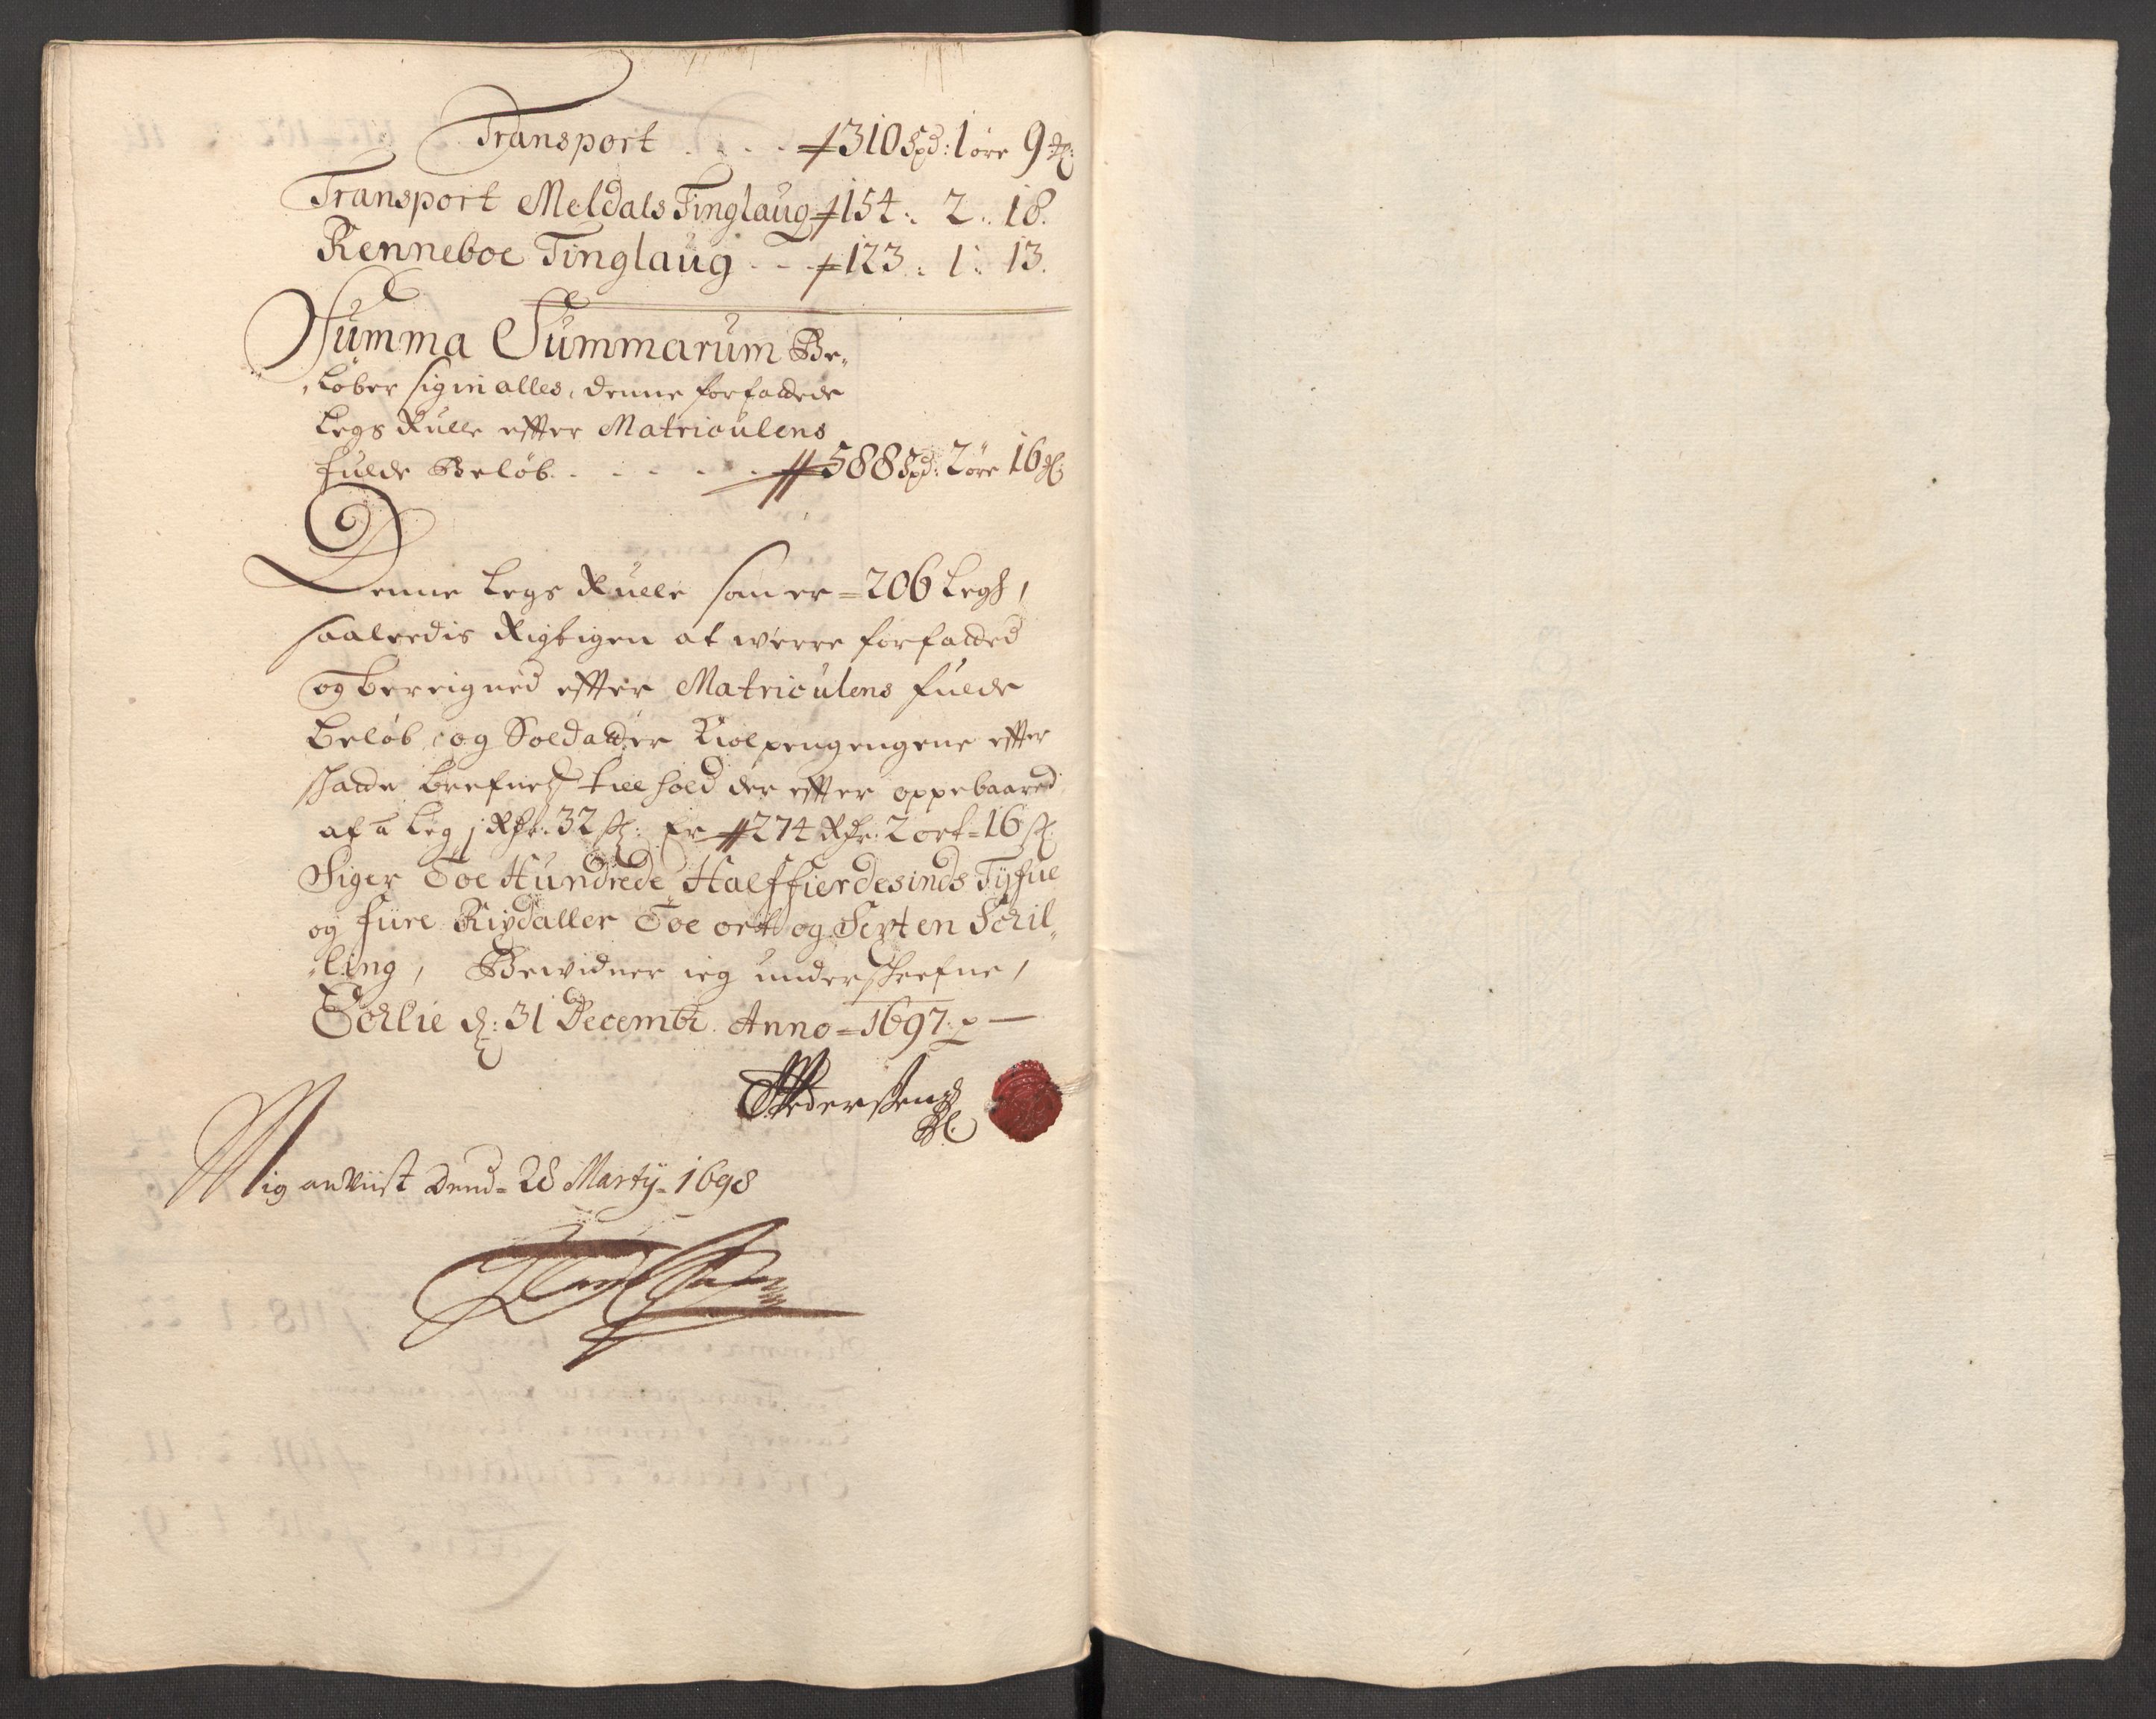 Transport . . . . 310 Spd: 1 øre 9 ₰:
Transport Meldals Tinglaug 154 : 2 : 18.
Renneboe Tinglaug . . . 123 : 1 : 13.
Summa Summarum Be„
„løber sig in alles, denne forfattede
Legs Rulle effter Matriculens
fulde Beløb . . . . . 588 Spd: 2 øre 16 ₰:
Denne Legs Rulle som er = 206 Legh,
saaledis Rigtigen at were forfatted
og bereigned effter Matriculens fulde
Beløb, og Soldatter Kiolpengengene effter
schatte brefuetz till hold der effter oppebaared
af a Leg j Rdr: 32 s: Er 274 Rdr: 2 ort = 16 s:
Siger Toe Hundrede Halffierdesinds Tyfue
og fiire Rixdaller Toe ort og Sexten Schil„
„ling, Bewidner ieg underschrefne,
d: 31 Decembr. Anno = 1697:
Pedersen
Mig anviist Dend = 28 Marty = 1698